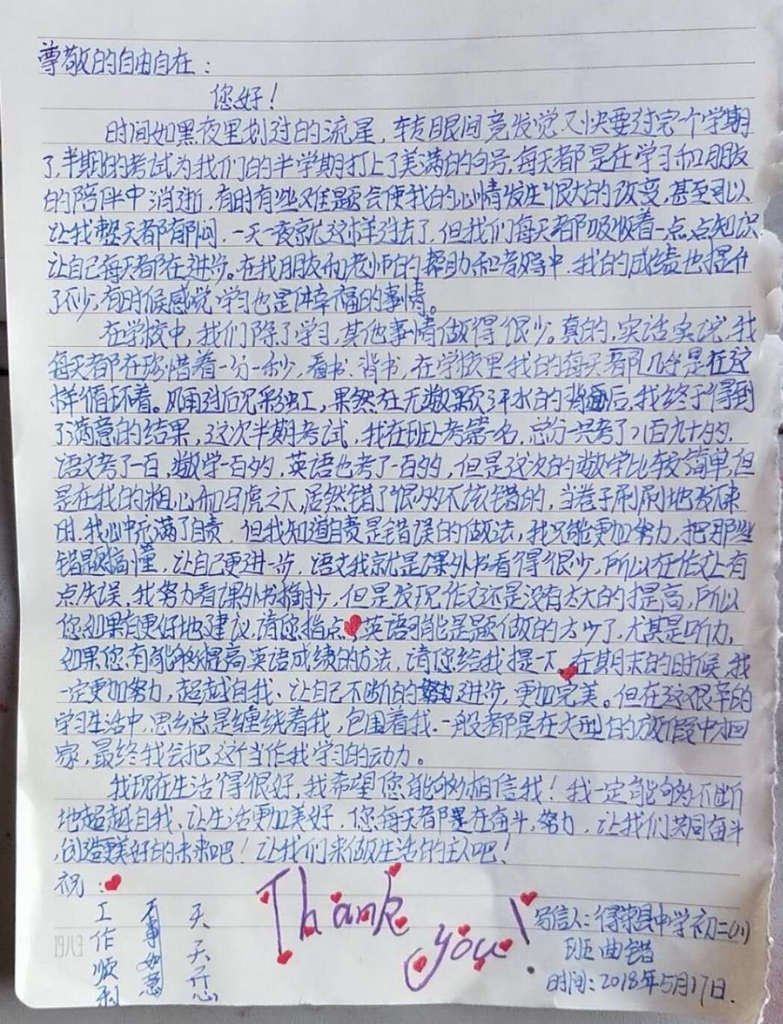 尊敬的自由自在：
您好！
时间如黑夜里划过的流星，转眼间竟发觉又快要过完个学期
了，半期的考试为我们的半学期打上了美满的句号，每天都是在学习和朋友
的陪伴中消逝，有时有些难题会使我的心情发生很大的改变，甚至可以
让我整天都郁闷，一天一夜就这样过去了，但我们每天都吸收着一点点知识
让自己每天都在进步。在我朋友和老师的帮助和督导中，我的成绩也提升
了不少，有时候感觉学习也是件幸福的事情。
在学校中，我们除了学习，其他事情做得很少。真的，实话实说，我
每天都在珍惜着一分一秒，看书、背书，在学校里我的每天都几乎是在这
样循环着。风雨过后见彩虹，果然在无数颗汗水的背后，我终于得到
了满意的结果，这次半期考试，我在班上考第一名，总分一共考了八百九十多，
语文考了一百，数学一百多，英语也考了一百多，但是这次的数学比较简单，但
是在我的粗心和马虎之下，居然错了很多不该错的，当卷子刷刷地发下来
时，我心中充满了自责，但我知道自责是错误的做法，我只能更加努力，把那些
错题搞懂，让自己更进一步，语文我就是课外书看得很少，所以在作文上有
点失误，我努力看课外书摘抄，但是发现作文还是没有太大的提高，所以
您如果有更好地建议，请您指点，英语可能是题做的太少了，尤其是听力，
如果您有能够提高英语成绩的方法，请您给我提一下，在期末的时候，我
一定更加努力，超越自我、让自己不断的进步，更加完美。但在这艰辛的
学习生活中，思乡总是缠绕着我，包围着我，一般都是在大型的放假中才回
家，最终我会把这个当作我学习的动力。
我现在生活得很好，我希望您能够相信我！我一定能够不断
地超越自我、让生活更加美好，您每天都是在奋斗，努力，让我们共同奋斗
，创造更美好的未来吧！让我们来做生活的主人吧！
祝：
工作顺利
万事如意
天天开心
Thank you!
写信人：得荣县中学初二(八)
班曲错
时间：2018年5月17日.